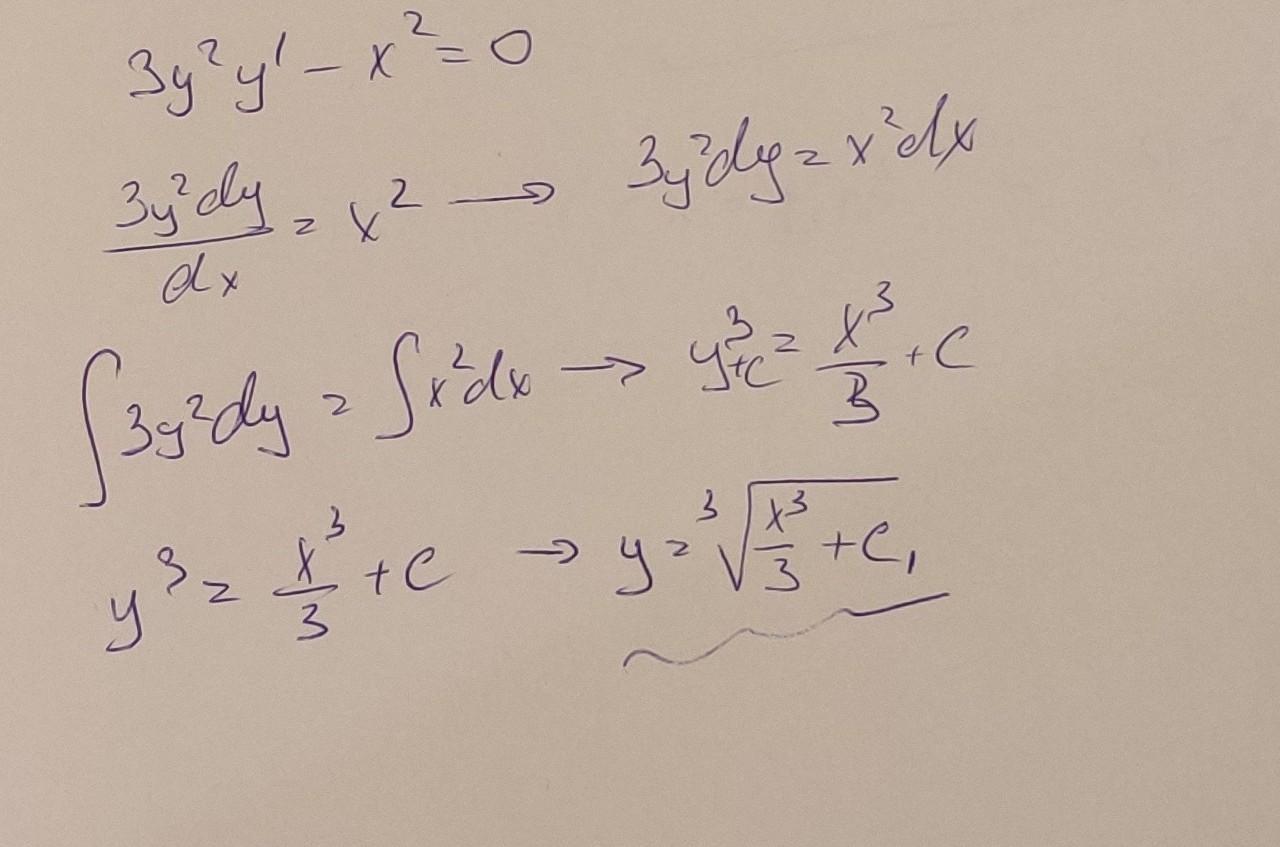 3y²y' - x² = 0
3y²dy/dx = x² → 3y²dy = x²dx
∫3y²dy = ∫x²dx → y³+c = x³/3 + C
y³ = x³/3 + C → y = ³√(x³/3 + C₁)